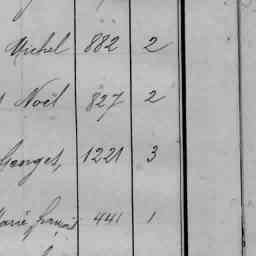 Michel 882 2
Noël 827 2
Georges, 1221 3
Marie, François 441 1